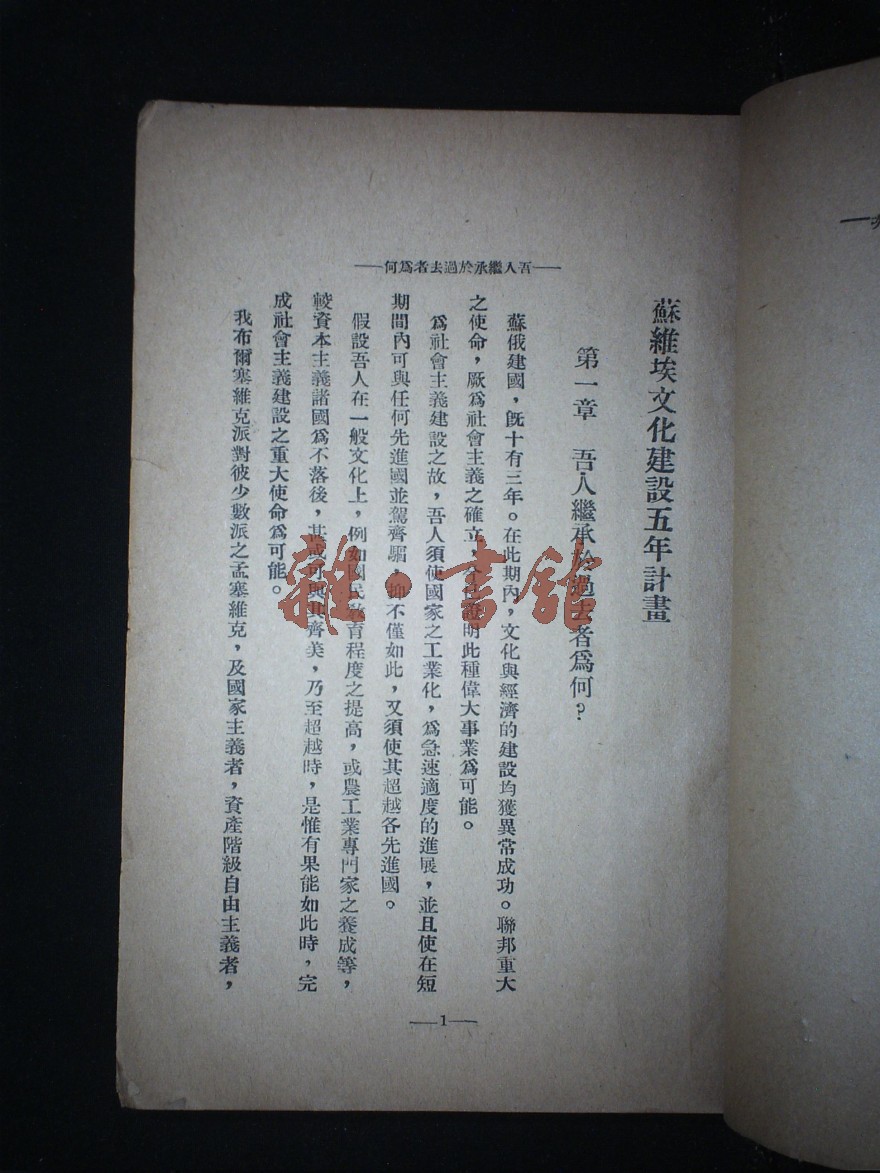 —吾人繼承於過去者爲何—
蘇維埃文化建設五年計畫
第一章 吾人繼承於過去者爲何?
蘇俄建國,旣十有三年。在此期內,文化與經濟的建設均獲異常成功。聯邦重大
之使命,厥爲社會主義之確立,證明此種偉大事業爲可能。
爲社會主義建設之故,吾人須使國家之工業化,爲急速適度的進展,並且使在短
期間內可與任何先進國並駕齊驅,抑不僅如此,又須使其超越各先進國。
假設吾人在一般文化上,例如國民敎育程度之提高,或農工業專門家之養成等,
較資本主義諸國爲不落後,甚或可與其齊美,乃至超越時,是惟有果能如此時,完
成社會主義建設之重大使命爲可能。
我布爾塞維克派對彼少數派之孟塞維克,及國家主義者,資產階級自由主義者,
—1—
雜·書館